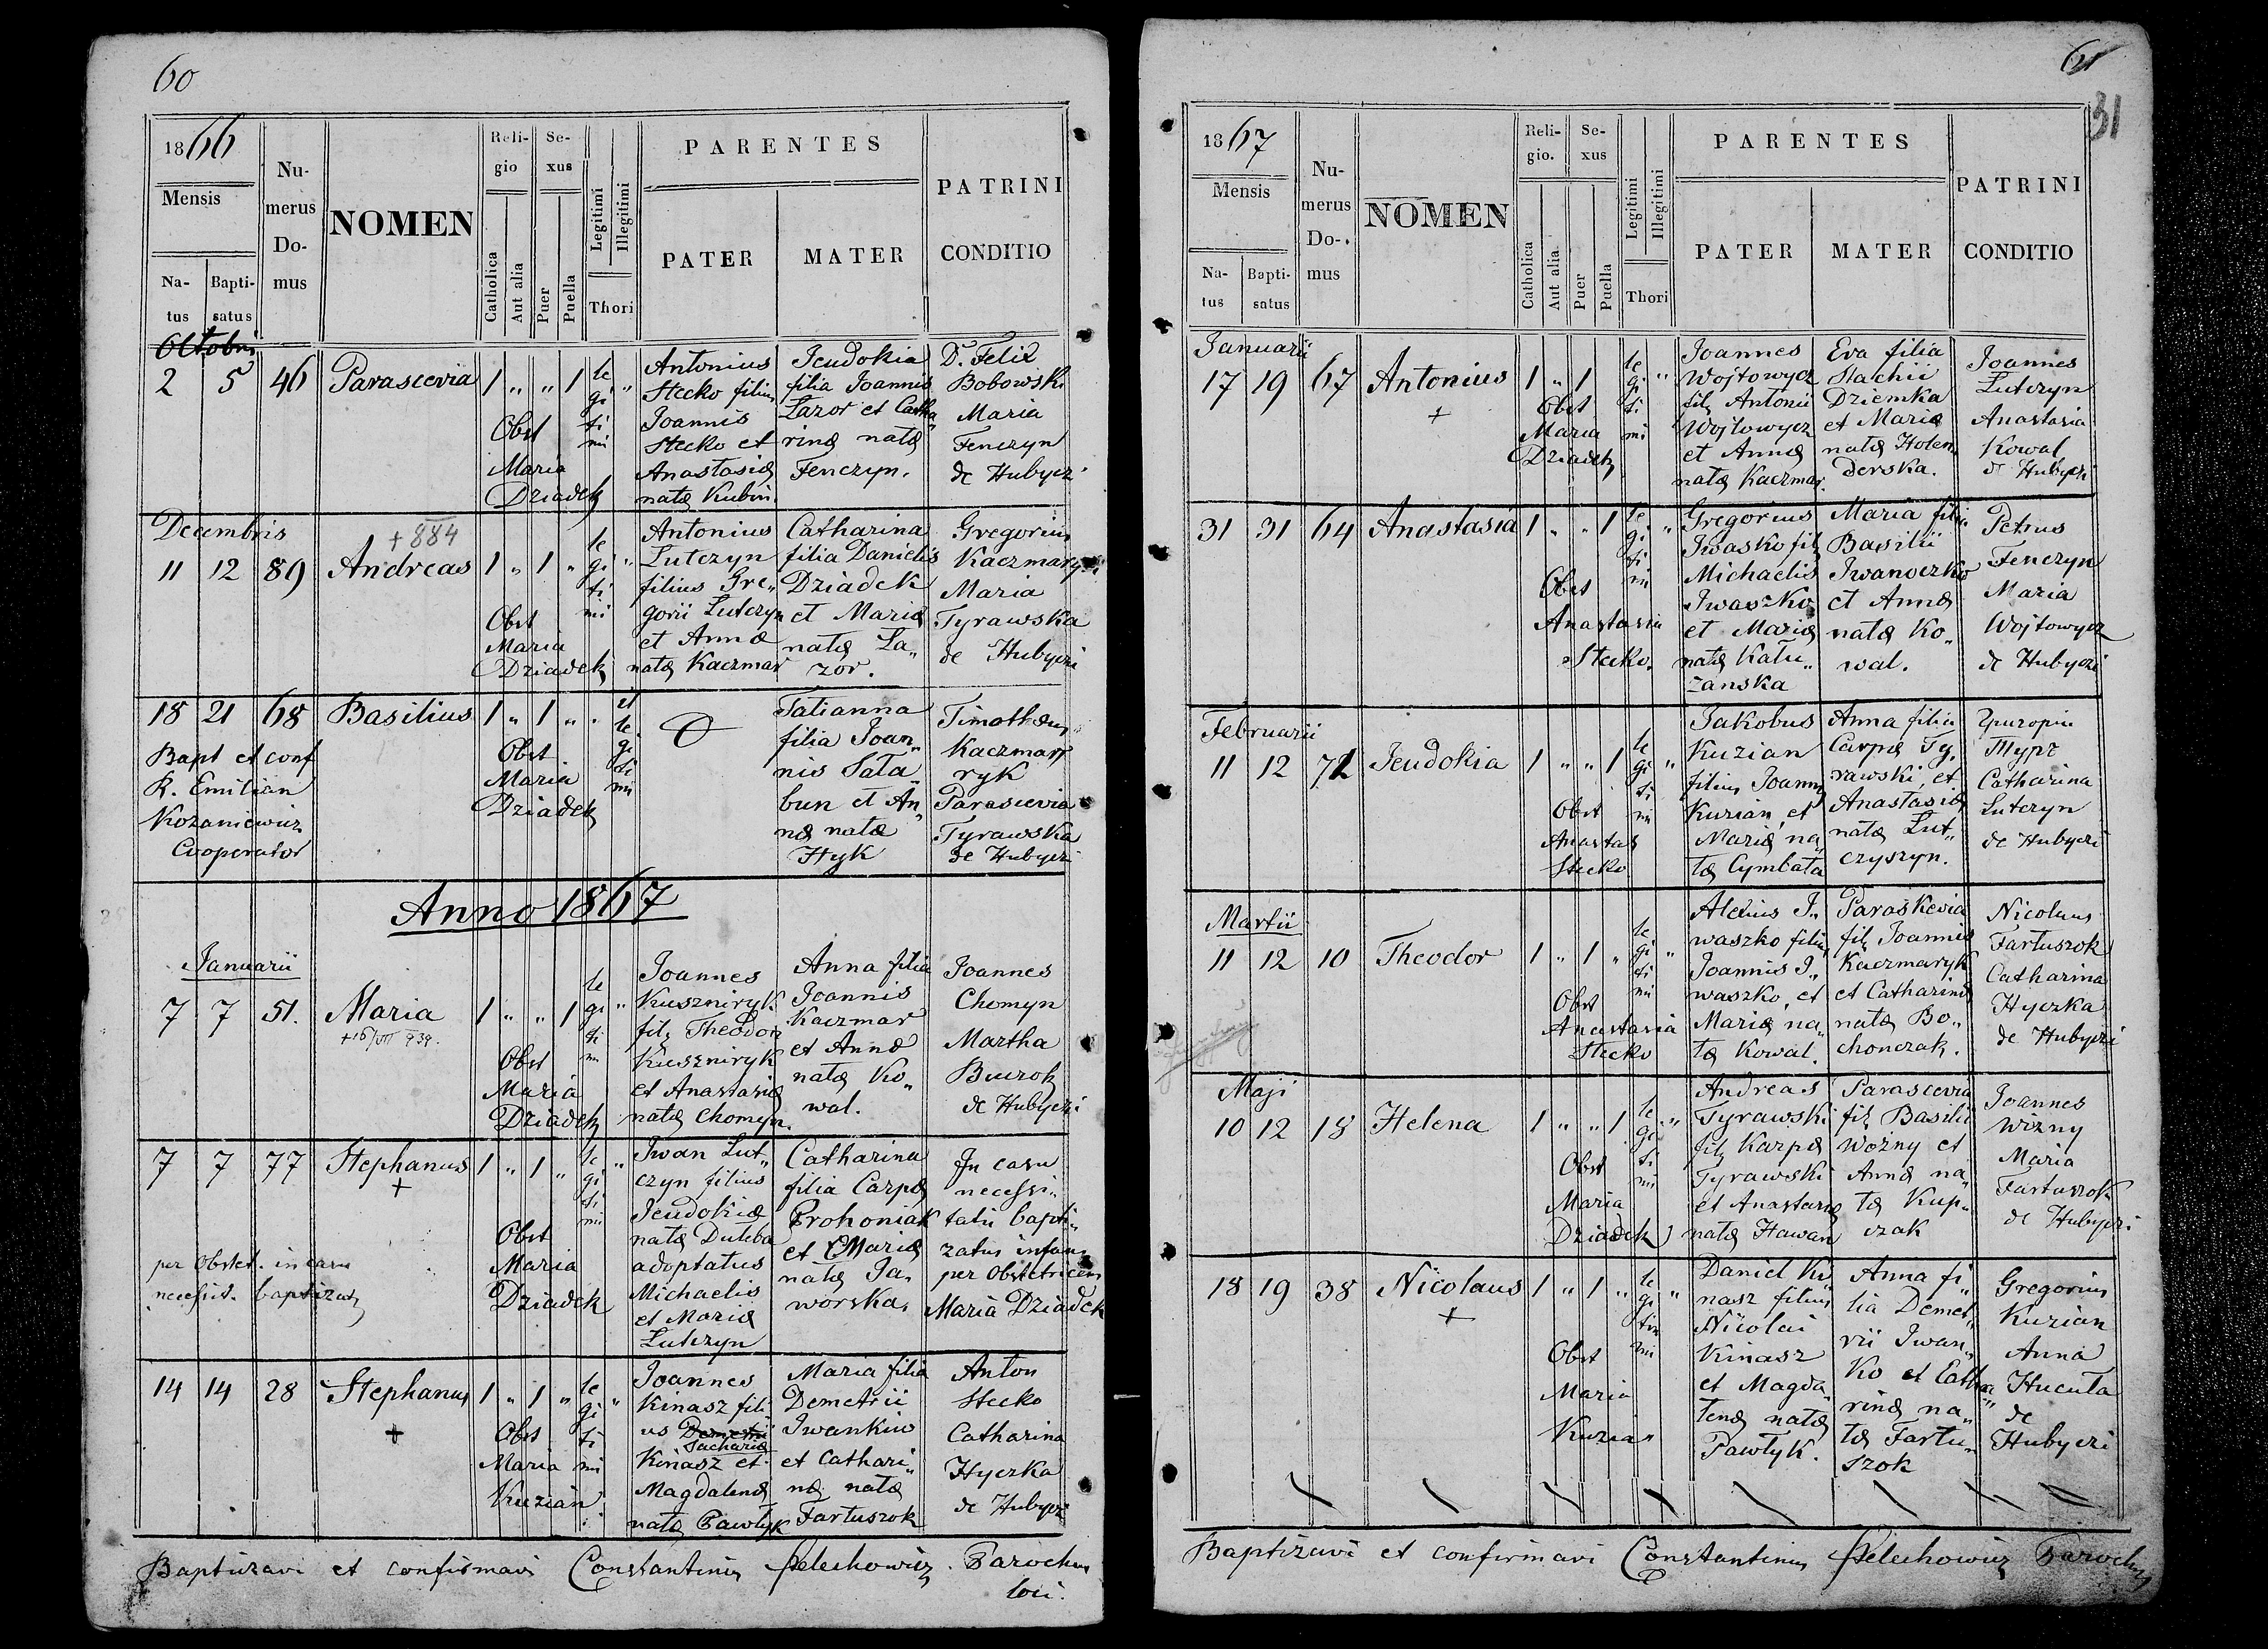 60
1866
Mensis
Natus
Baptisatus
Numerus Domus
NOMEN
Religio
Catholica
Aut alia
Sexus
Puer
Puella
Legitimi
Illegitimi
Thori
PARENTES
PATER
MATER
PATRINI
CONDITIO
Octobris
2 5 46 Parascevia 1 " " 1 le gi ti mi "
Obst
Maria
Dziadek
Antonius
Stecko filius
Joannis
Stecko et
Anastasiæ
natæ Kubin.
Jeudokia
filia Joannis
Lazor et Catha„
rinæ natæ
Fenczyn.
D. Felix
Bobowski
Maria
Fenczyn
de Hubyczi
Decembris
+ 884
11 12 89 Andreas 1 " 1 " le gi ti mi "
Obst
Maria
Dziadek
Antonius
Lutczyn
filius Gre„
gorii Lutczyn
et Annæ
natæ Kaczmar
Catharina
filia Danielis
Dziadek
et Mariæ
natæ La„
zor.
Gregorius
Kaczmaryk
Maria
Tyrawska
de Hubyczi
18 21 68 Basilius 1 " 1 " " il le gi ti mi
Bapt et conf
R. Emilian
Kozaniewicz
Cooperator
Obst
Maria
Dziadek
Tatianna
filia Joan„
nis Sala„
bun et An„
næ natæ
Hyk
Timotheus
Kaczmar
ryk
Parascevia
Tyrawska
de Hubyczi
Anno 1867
Januarii
7 7 51. Maria 1 " " 1 le gi ti mi "
+16/VII 939.
Obst
Maria
Dziadek
Joannes
Kuszniryk
fil Theodor
Kuszniryk
et Anastasiæ
natæ Chomyn.
Anna filia
Joannis
Kaczmar
et Annæ
natæ Ko„
wal.
Joannes
Chomyn
Martha
Burok
de Hubyczi
7 7 77 Stephanus 1 " 1 " le gi ti mi "
+
per Obstet. in casu
necessit. baptizat
Obst
Maria
Dziadek
Iwan Lut„
czyn filius
Jeudokiæ
natæ Duleba
adoptatus
Michaelis
et Mariæ
Lutczyn
Catharina
filia Carpæ
Prokoniak
et Mariæ
natæ Ja„
worska.
In casu
necessi„
tatis bapti„
zatus infans
per Obstetricem
Maria Dziadek
14 14 28 Stephanus 1 " 1 " le gi ti mi "
+
Obst
Maria
Kuzian
Joannes
Kinasz fili
us Demetrii
Zachariæ
Kinasz et
Magdalenæ
natæ Pawlyk
Maria filia
Demetrii
Iwankiw
et Cathari„
næ natæ
Fartuszok
Anton
Stecko
Catharina
Hyczka
de Hubyczi
Baptizavi et confirmavi Constantinus Pelechowicz Parochus
loci.
61
31
1867
Mensis
Natus
Baptisatus
Numerus Domus
NOMEN
Religio.
Catholica
Aut alia
Sexus
Puer
Puella
Legitimi
Illegitimi
Thori
PARENTES
PATER
MATER
PATRINI
CONDITIO
Januarii
17 19 67 Antonius 1 " 1 le gi ti mi "
+
Obst
Maria
Dziadek
Joannes
Wojtowycz
fil Antonii
Wojtowycz
et Annæ
natæ Kaczmar.
Eva filia
Stachii
Dziemka
et Mariæ
natæ Holen„
derska.
Joannes
Lutczyn
Anastasia
Kowal
de Hubyczi
31 31 64 Anastasia 1 " " 1 le gi ti mi "
Obst
Anastasia
Stecko.
Gregorius
Iwasko fil
Michaelis
Iwaszko
et Mariæ
natæ Kału„
zanska
Maria filia
Basilii
Iwanoczko
et Annæ
natæ Ko„
wal.
Petrus
Fenczyn
Maria
Wojtowycz
de Hubyczi
Februarii
11 12 72 Jeudokia 1 " " 1 le gi ti mi "
Obst
Anastas
Stecko
Jakobus
Kuzian
filius Joannis
Kuzian, et
Mariæ na„
tæ Cymbala
Anna filia
Carpæ Ty„
rawski, et
Anastasiæ
natæ Lut„
czyszyn.
Григорій
Турк
Catharina
Lutczyn
de Hubyczi
Martii
11 12 10 Theodor 1 " 1 " le gi ti mi "
Obst
Anastasia
Stecko
Alexius I„
waszko filius
Joannis I„
waszko, et
Mariæ na„
tæ Kowal.
Paraskevia
fil Joannis
Kaczmaryk
et Catharinæ
natæ Bo„
chonczak.
Nicolaus
Fartuszok
Catharina
Hyczka
de Hubyczi
Maji
10 12 18 Helena 1 " " 1 le gi ti mi "
Obst
Maria
Dziadek
Andreas
Tyrawski
fil Karpæ
Tyrawski
et Anastasiæ
natæ Hawan
Parascevia
fil Basilii
Wozny et
Annæ na„
tæ Kup„
czak
Joannes
Wizny
Maria
Fartuszok
de Hubyczi
18 19 38 Nicolaus 1 " 1 " le gi tim mi "
+
Obst
Maria
Kuzian
Daniel Ki„
nasz filius
Nicolai
Kinasz
et Magda„
lenæ natæ
Pawlyk.
Anna fi„
lia Demet„
rii Iwan„
ko et Catha„
rinæ na„
tæ Fartu„
szok
Gregorius
Kuzian
Anna
Hucuła
de
Hubyczi
Baptizavi et confirmavi Constantinus Pelechowicz Parochus